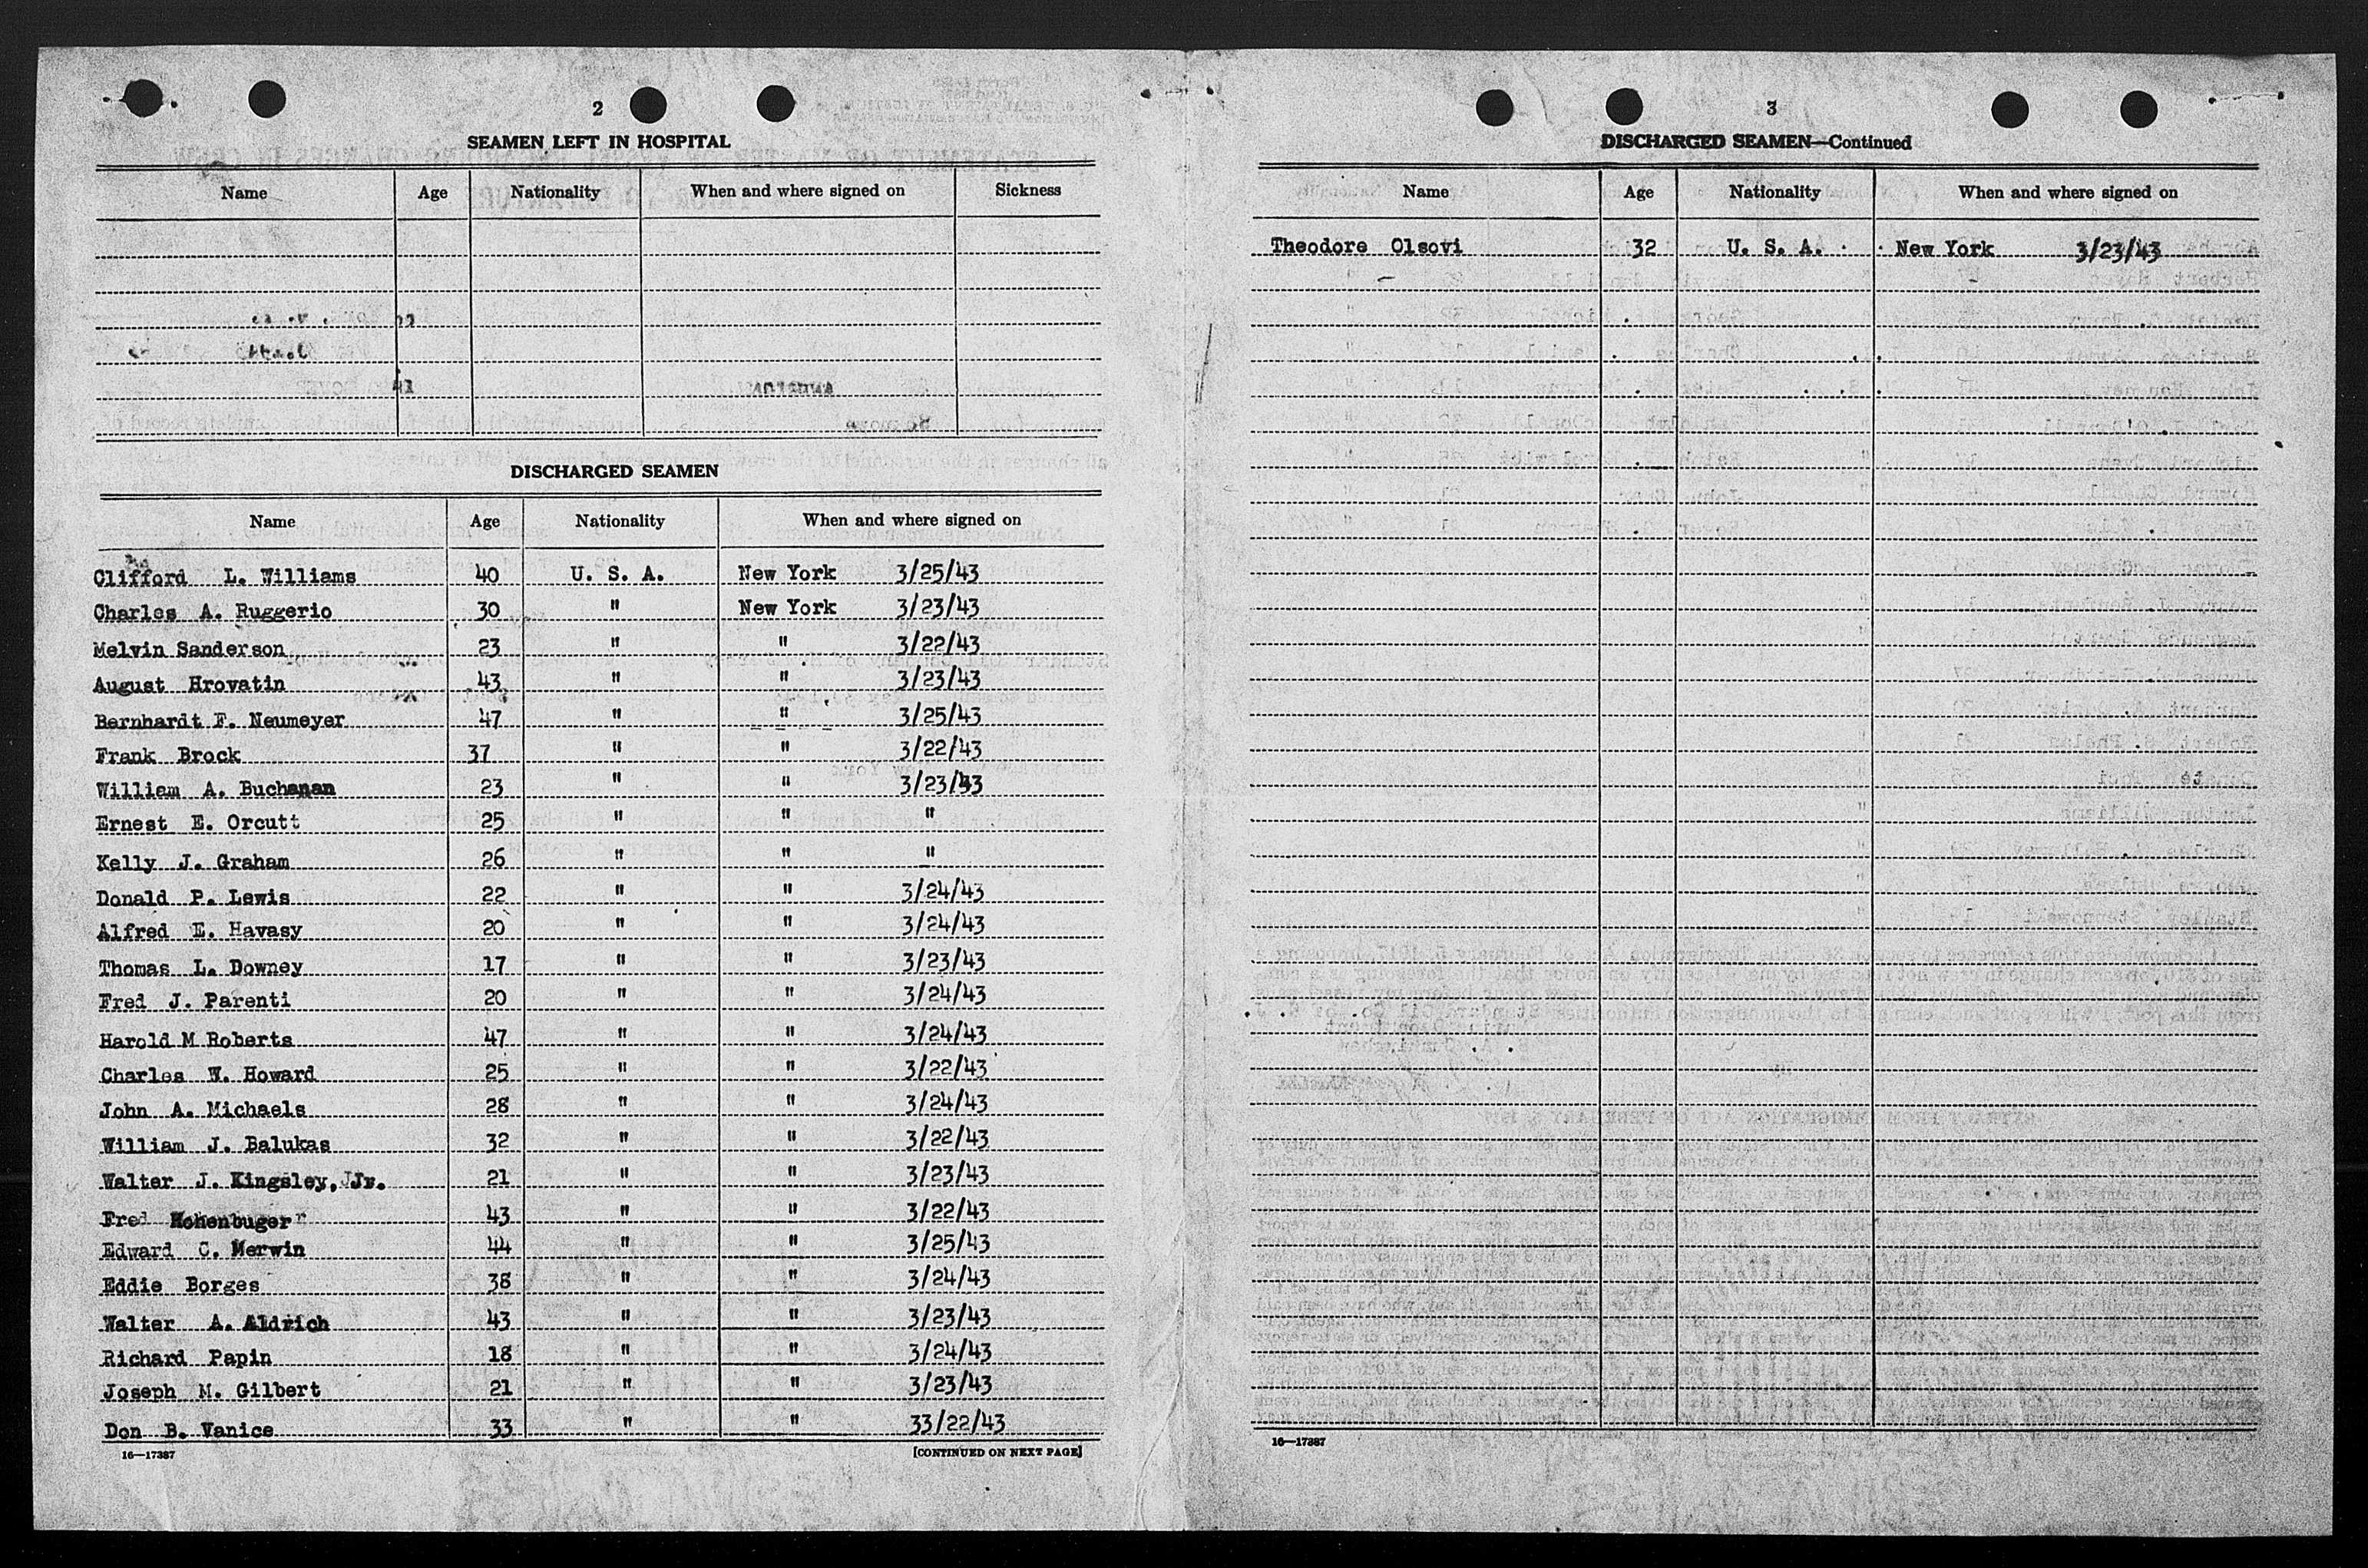 2
SEAMEN LEFT IN HOSPITAL
Name Age Nationality When and where signed on Sickness
DISCHARGED SEAMEN
Name Age Nationality When and where signed on
Clifford L. Williams 40 U. S. A. New York 3/25/43
Charles A. Ruggerio 30 " New York 3/23/43
Melvin Sanderson 23 " " 3/22/43
August Hrovatin 43 " " 3/23/43
Bernhardt F. Neumeyer 47 " " 3/25/43
Frank Brock 37 " " 3/22/43
William A. Buchanan 23 " " 3/23/43
Ernest E. Orcutt 25 " " "
Kelly J. Graham 26 " " "
Donald P. Lewis 22 " " 3/24/43
Alfred E. Havasy 20 " " 3/24/43
Thomas L. Downey 17 " " 3/23/43
Fred J. Parenti 20 " " 3/24/43
Harold M Roberts 47 " " 3/24/43
Charles W. Howard 25 " " 3/22/43
John A. Michaels 28 " " 3/24/43
William J. Balukas 32 " " 3/22/43
Walter J. Kingsley, JJr. 21 " " 3/23/43
Fred Hohenbuger 43 " " 3/22/43
Edward C. Merwin 44 " " 3/25/43
Eddie Borges 38 " " 3/24/43
Walter A. Aldrich 43 " " 3/23/43
Richard Papin 18 " " 3/24/43
Joseph M. Gilbert 21 " " 3/23/43
Don B. Vanice 33 " " 33/22/43
16—17387 [CONTINUED ON NEXT PAGE]
3
DISCHARGED SEAMEN—Continued
Name Age Nationality When and where signed on
Theodore Olsovi 32 U. S. A. New York 3/23/43
16—17387